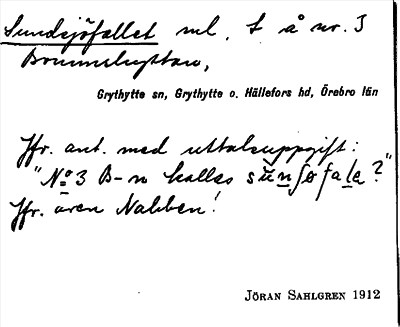 Sundsjöfallet ml. t å nr. 3
Brunnshyttan,
Grythytte sn, Grythytte o. Hällefors hd, Örebro län
Jfr. ant. med uttalsuppgift:
"No 3 B-n kallas sŭnʃøfalɛ?"
Jfr. även Nabben!
JÖRAN SAHLGREN 1912